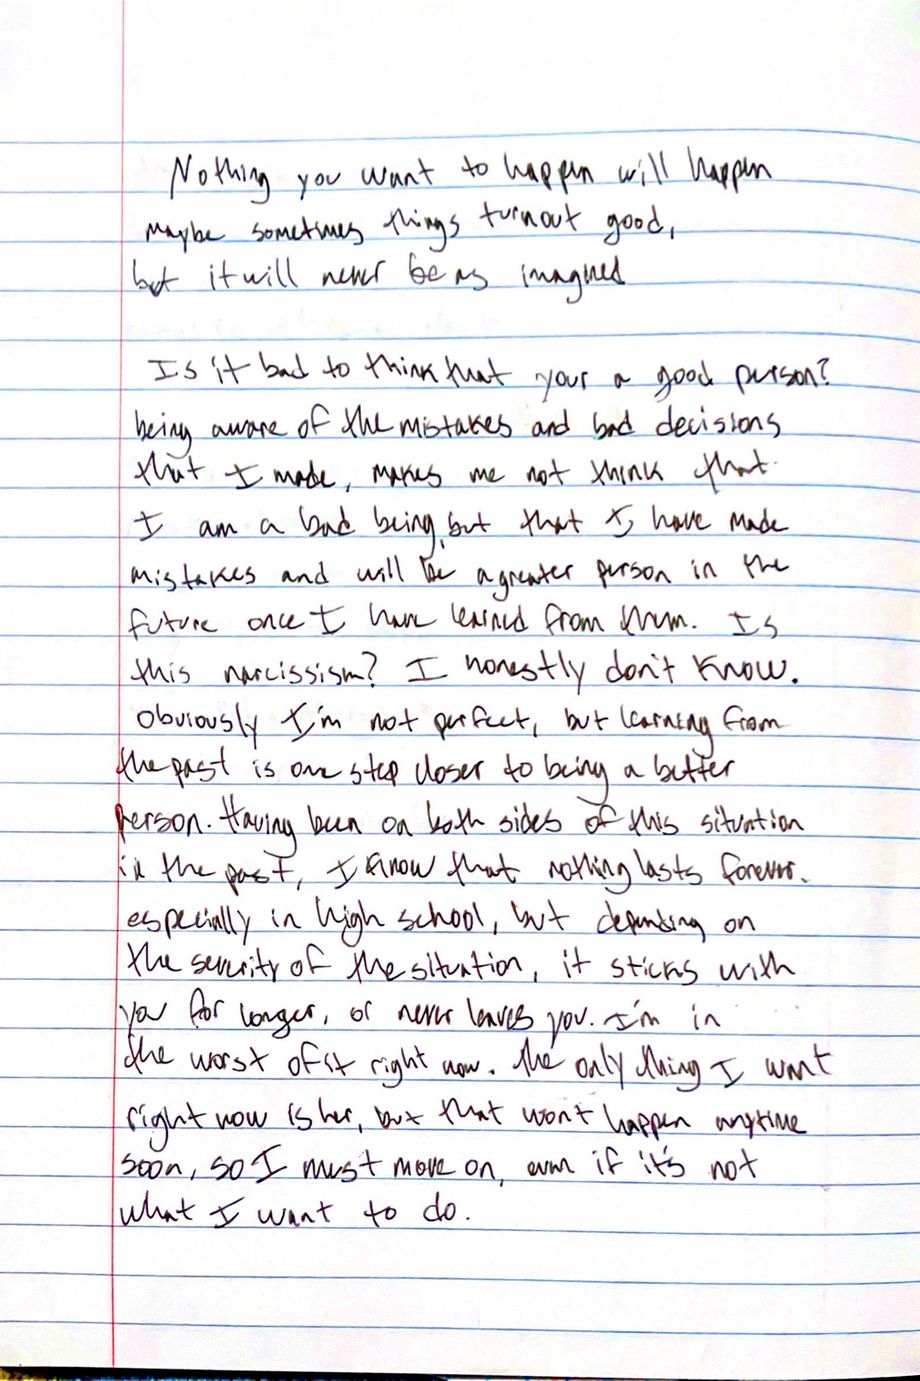 Nothing you want to happen will happen
maybe sometimes things turnout good,
but it will never be as imagined
Is it bad to think that your a good person?
being aware of the mistakes and bad decisions
that I made, makes me not think that
I am a bad being, but that I have made
mistakes and will be a greater person in the
future once I have learned from them. Is
this narcissism? I honestly don't know.
Obviously I'm not perfect, but learning from
the past is one step closer to being a better
person. Having been on both sides of this situation
in the past, I know that nothing lasts forever.
especially in high school, but depending on
the severity of the situation, it sticks with
you for longer, or never leaves you. I'm in
the worst of it right now. the only thing I want
right now is her, but that wont happen anytime
soon, so I must move on, even if it's not
what I want to do.